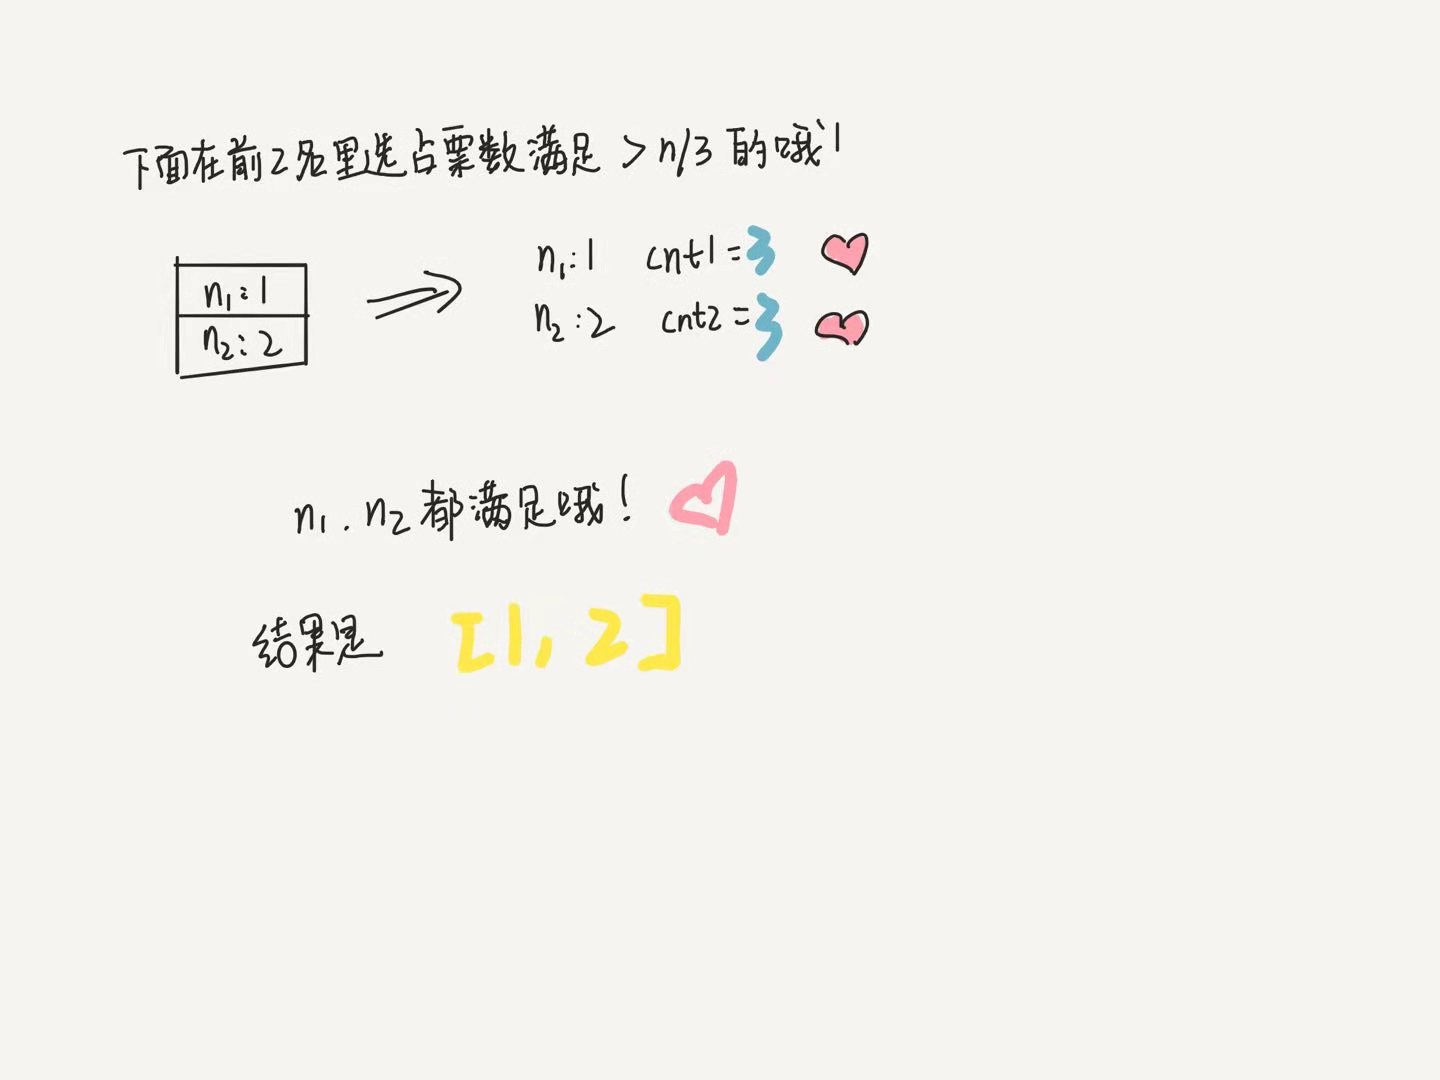 下面在前2名里选占票数满足 > n/3 的哦!
n₁:1
n₂:2
n₁:1 cnt1=3
n₂:2 cnt2=3
n₁. n₂ 都满足哦!
结果是 [1, 2]